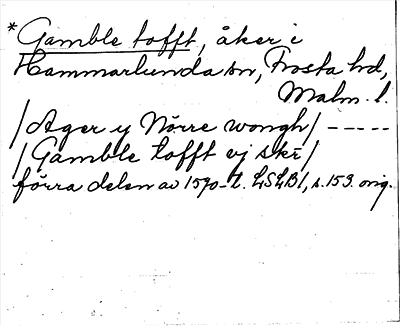 *Gamble tofft, åker i
Hammarlunda sn, Frosta hd,
Malm. l.
/Ager y Nörre wongh/ -----
/Gamble tofft ej skr/
förra delen av 1590-t. LSLB1, s. 153. orig.